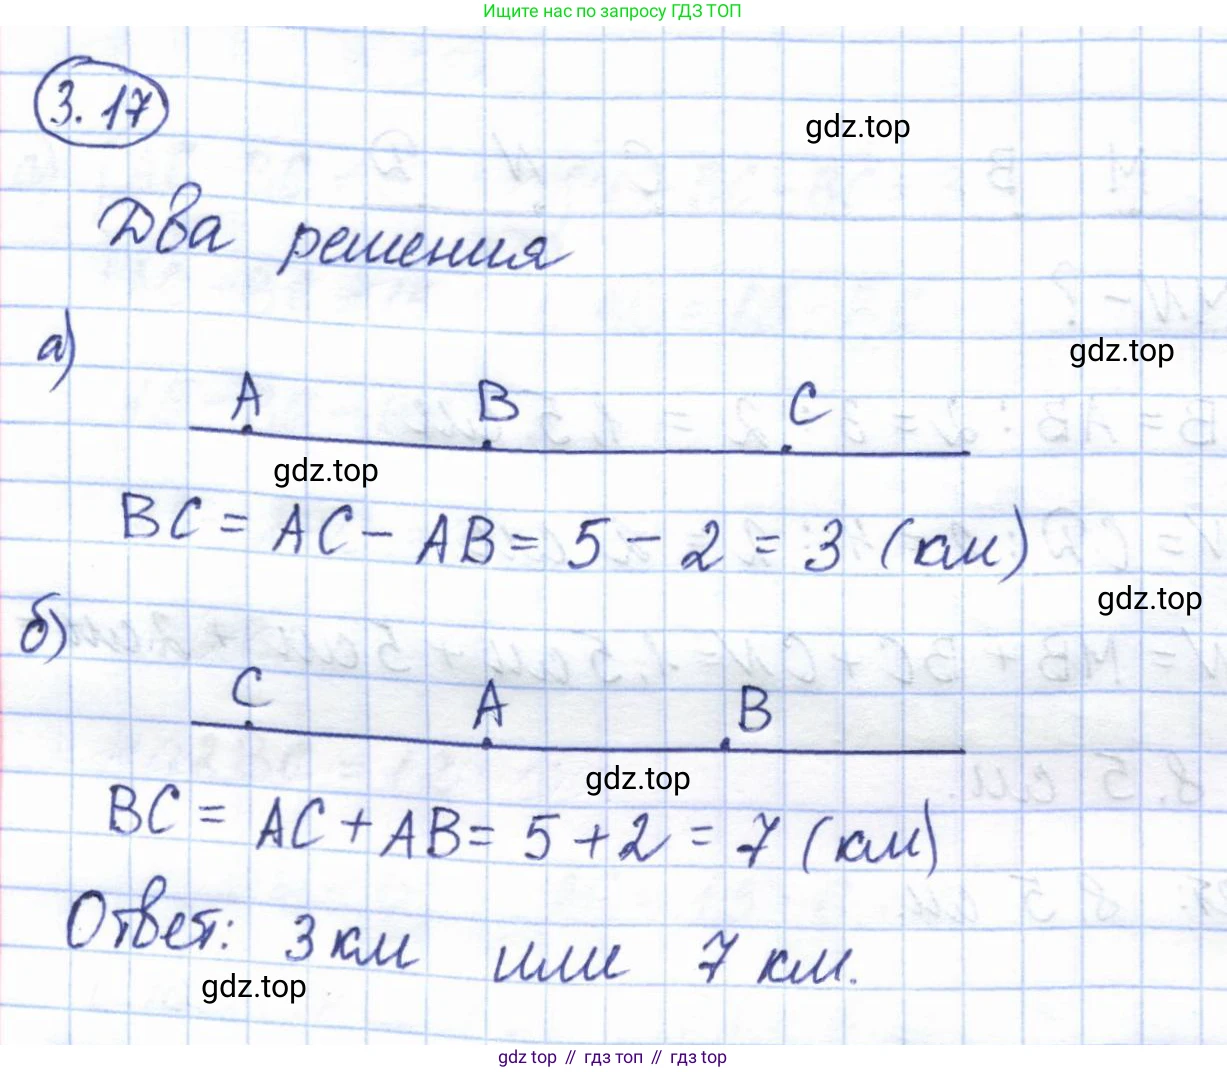 Ищите нас по запросу ГДЗ ТОП
3.17
gdz.top
Два решения
а)
gdz.top
A B C
gdz.top
BC = AC - AB = 5 - 2 = 3 (км)
gdz.top
б)
C A B
gdz.top
BC = AC + AB = 5 + 2 = 7 (км)
Ответ: 3 км или 7 км.
gdz.top
gdz top // гдз топ // гдз top